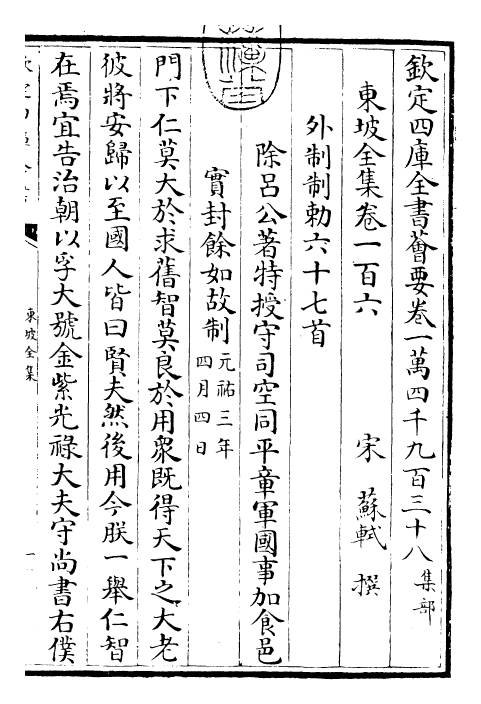 欽定四庫全書薈要卷一萬四千九百三十八 集部
東坡全集卷一百六
宋 蘇軾 撰
外制制勅六十七首
除呂公著特授守司空同平章軍國事加食邑
實封餘如故制 元祐三年
四月四日
門下仁莫大於求舊智莫良於用衆既得天下之大老
彼將安歸以至國人皆曰賢夫然後用今朕一舉仁智
在焉宜告治朝以孚大號金紫光祿大夫守尚書右僕
東坡全集
一